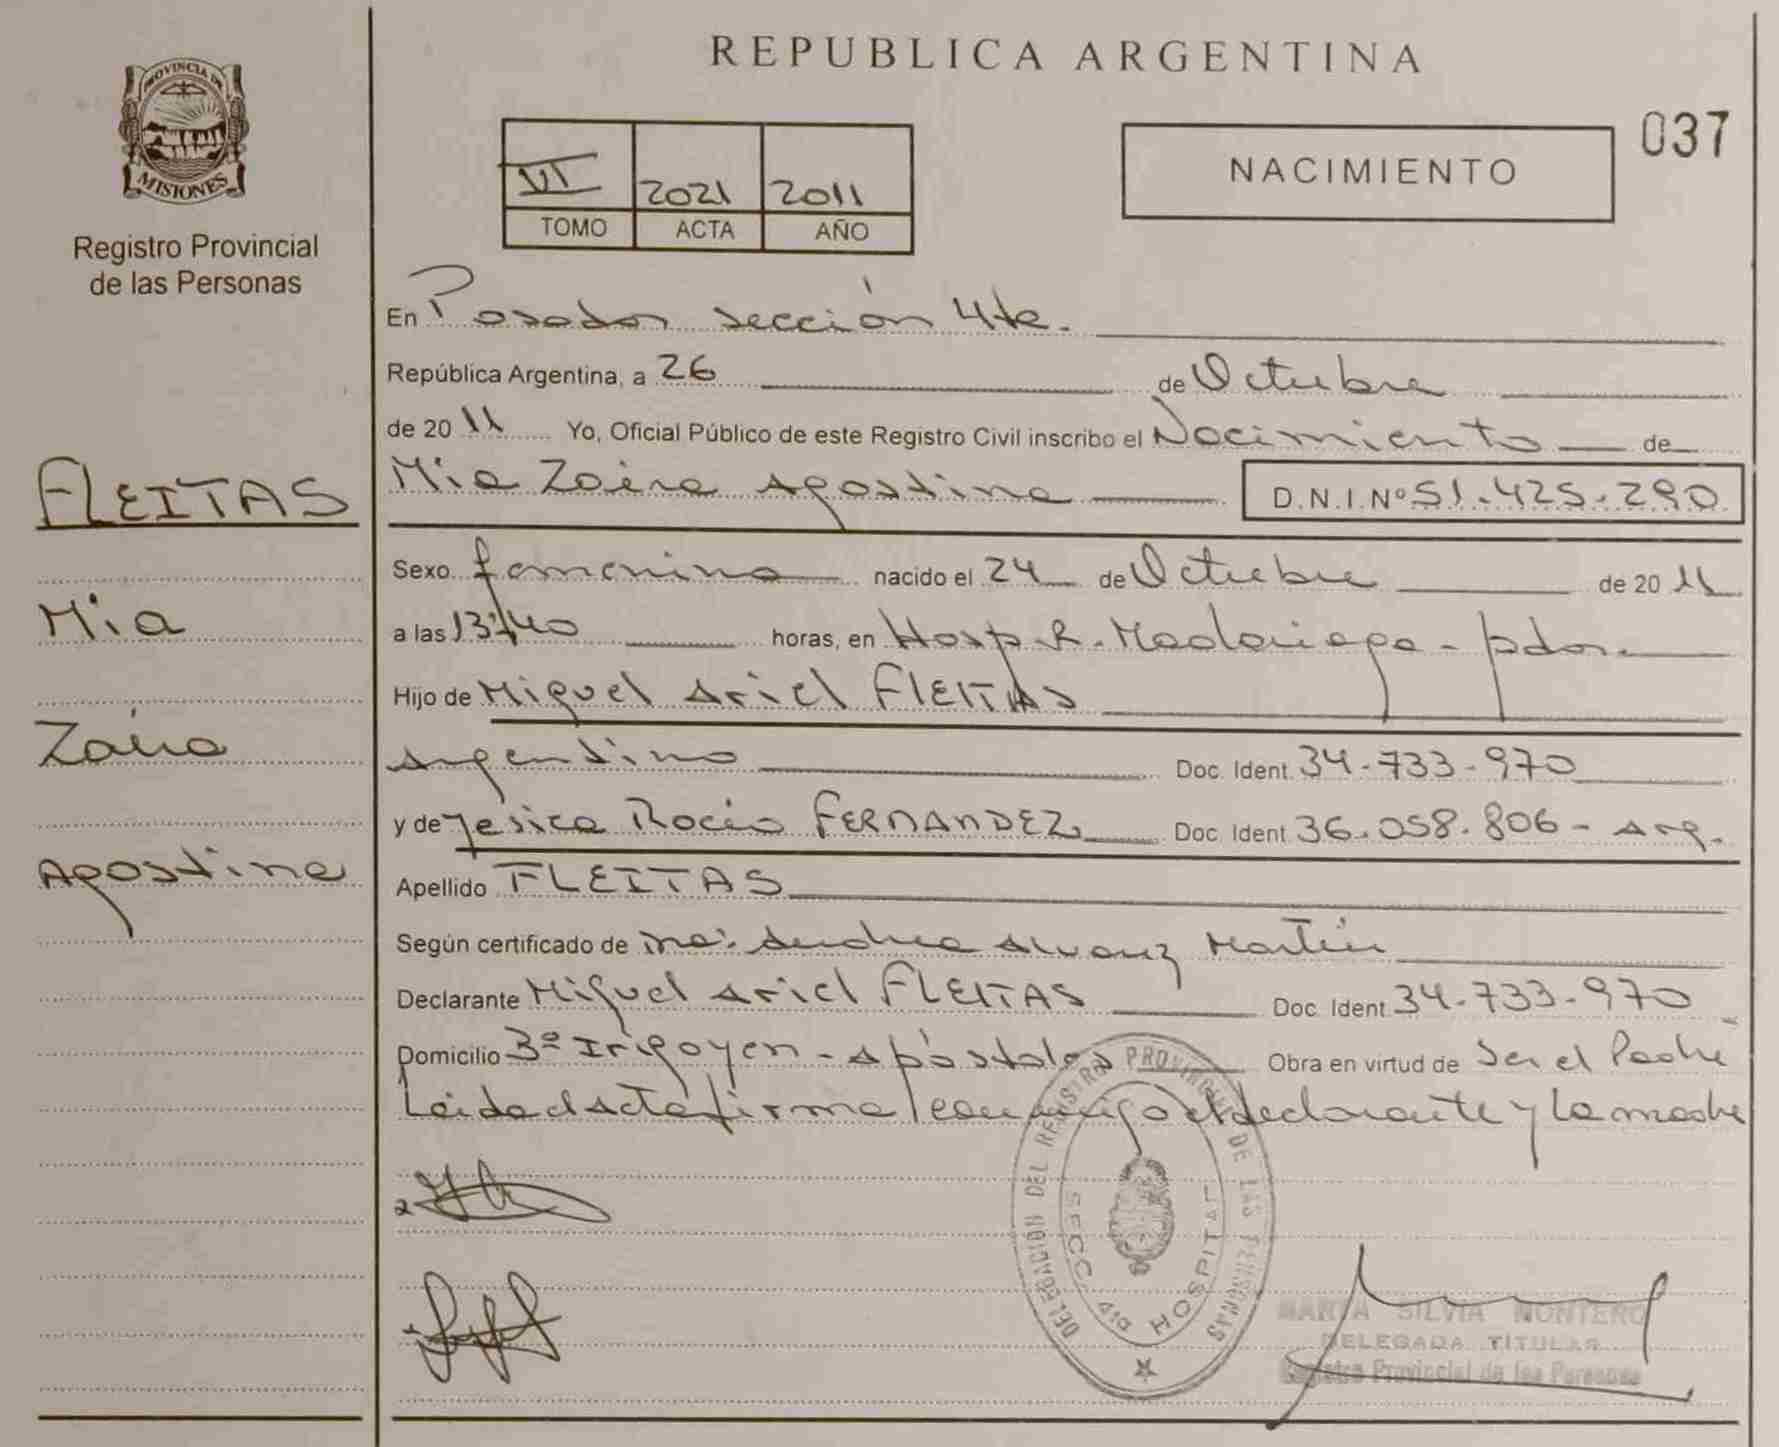 REPUBLICA ARGENTINA
037
PROVINCIA DE
MISIONES
Registro Provincial
de las Personas
VI 2021 2011
TOMO ACTA AÑO
NACIMIENTO
En Posadas sección 4ta.
República Argentina, a 26 de Octubre
de 2011 Yo, Oficial Público de este Registro Civil inscribo el Nacimiento de
Mia Zaira Agostina D.N.I.Nº 51.425.290
FLEITAS
Mia
Zaira
Agostina
Sexo femenino nacido el 24 de Octubre de 2011
a las 13:40 horas, en Hosp. R. Madariaga - pdas.
Hijo de Miguel Ariel FLEITAS
argentino Doc. Ident. 34.733.970
y de Jesica Rocio FERNANDEZ Doc. Ident. 36.058.806 - Arg.
Apellido FLEITAS
Según certificado de Andrea Alvarez Martin
Declarante Miguel Ariel FLEITAS Doc. Ident. 34.733.970
Domicilio 3º Irigoyen - Apóstoles Obra en virtud de Ser el Padre
Leida el Acta firma conmigo el declarante y la madre
DELEGACIÓN DEL REGISTRO PROVINCIAL DE LAS PERSONAS
SECC. 4ta HOSPITAL
MARTA SILVIA MONTERO
DELEGADA TITULAR
Registro Provincial de las Personas